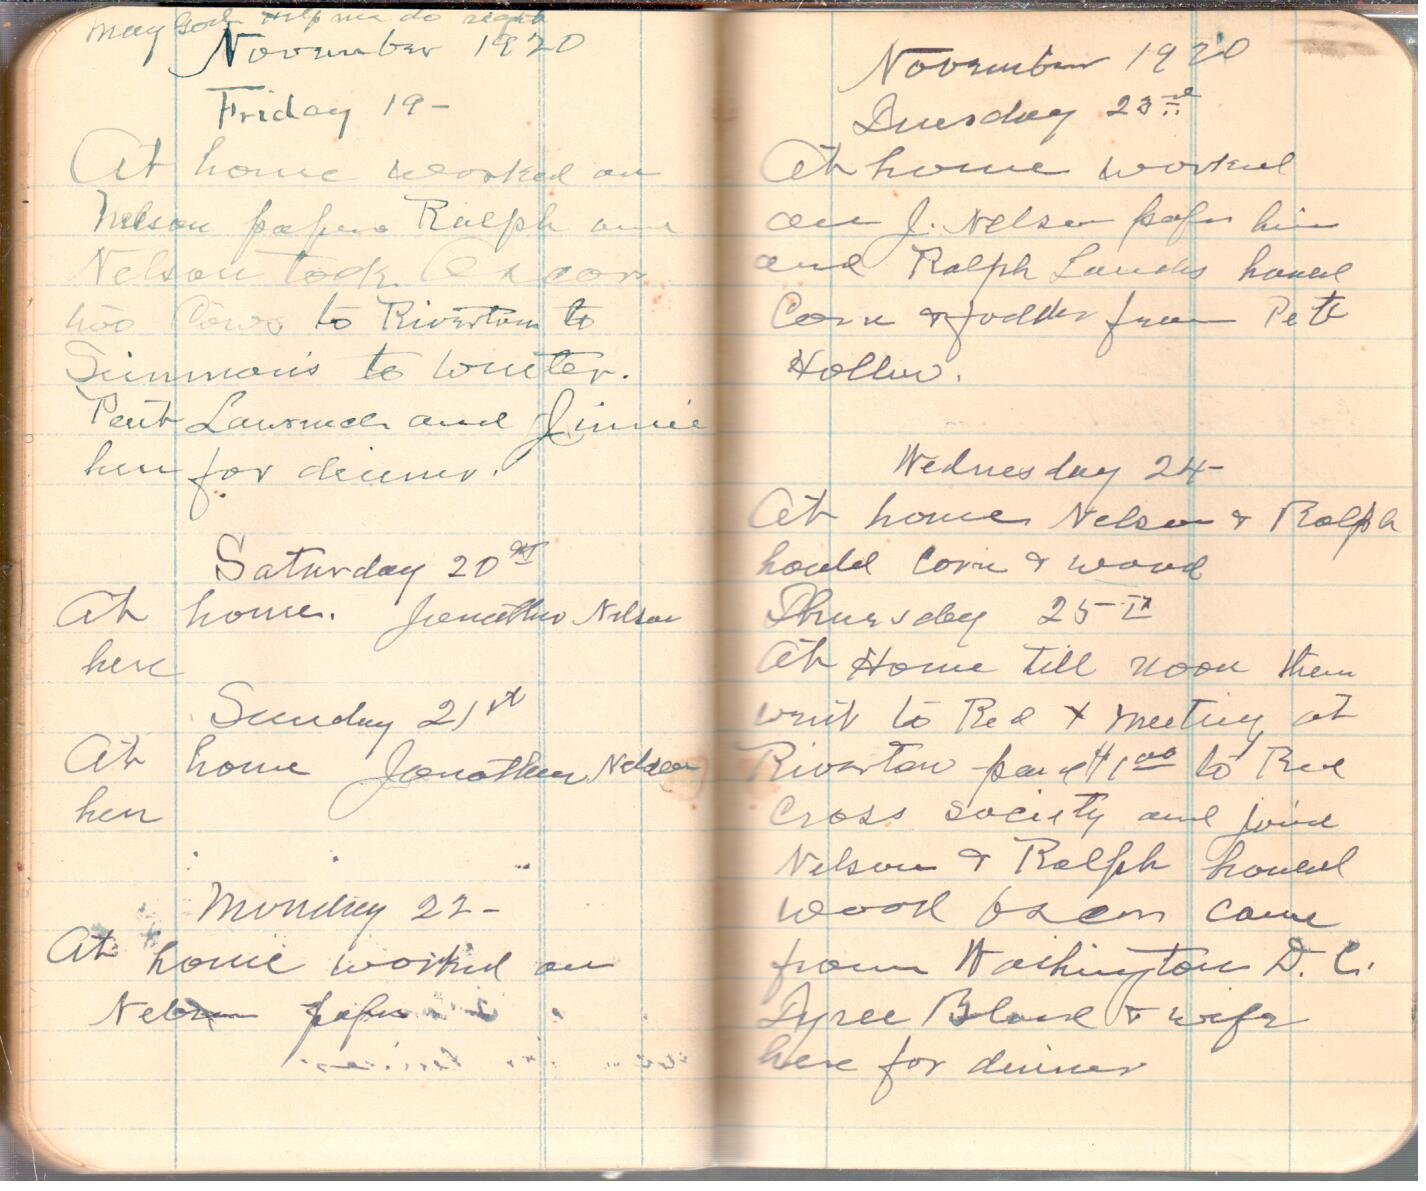 May God Help me do right
November 1920
Friday 19-
At home worked on
Nelson papers Ralph and
Nelson took Oscar
two Cows to Riverton to
Simmons to winter.
Lawrence and Jinnie
here for dinner.
Saturday 20st
At home. Jonathan Nelson
here
Sunday 21st
At home Jonathan Nelson
here
Monday 22-
At home worked on
Nelson papers
November 1920
Tuesday 23rd
At home worked
on J. Nelson paper him
and Ralph Landis hauld
Corn & fodder from Pete
Hollow.
Wednesday 24-
At home Nelson & Ralph
hauld Corn & wood
Thursday 25
At Home till noon then
went to Red X meeting at
Riverton paid $1.00 to Red
Cross society and joind
Nelson & Ralph hauld
wood Oscar came
from Washington D. C.
Tyree Bland & wife
here for dinner